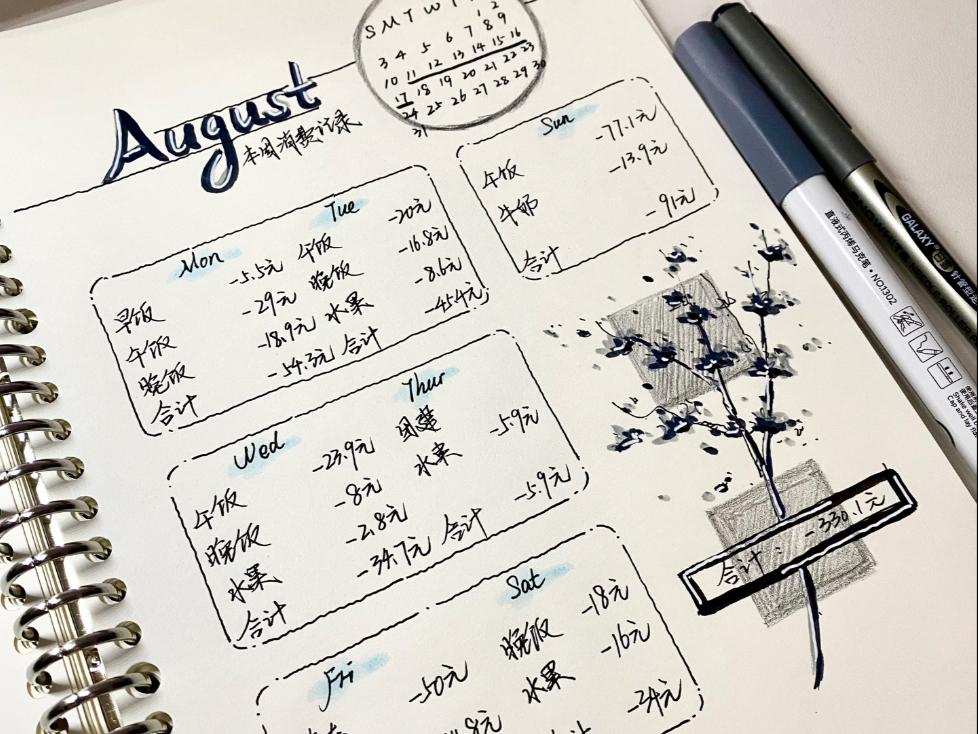 S M T W T
1 2
3 4 5 6 7 8 9
10 11 12 13 14 15 16
17 18 19 20 21 22 23
24 25 26 27 28 29 30
31
August
本周消费记录
Mon
早饭 -5.5元
午饭 -29元
晚饭 -18.9元
合计 -54.3元
Tue
午饭 -20元
晚饭 -16.8元
水果 -8.6元
合计 -45.4元
Wed
午饭 -23.9元
晚饭 -8元
水果 -2.8元
合计 -34.7元
Thur
团建
水果 -5.9元
合计 -5.9元
Fri
-50元
Sat
晚饭 -18元
水果 -16元
-34元
Sun
午饭 -77.1元
牛奶 -13.9元
合计 -91元
合计: -330.1元
直液式丙烯马克笔·NO1302
GALAXY